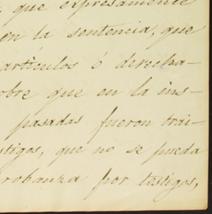 que expresamente
en la sentencia, que
artículos ó derecha-
obre que en la ins-
pasadas fueron trai-
stigos, que no se pueda
robanza por testigos,